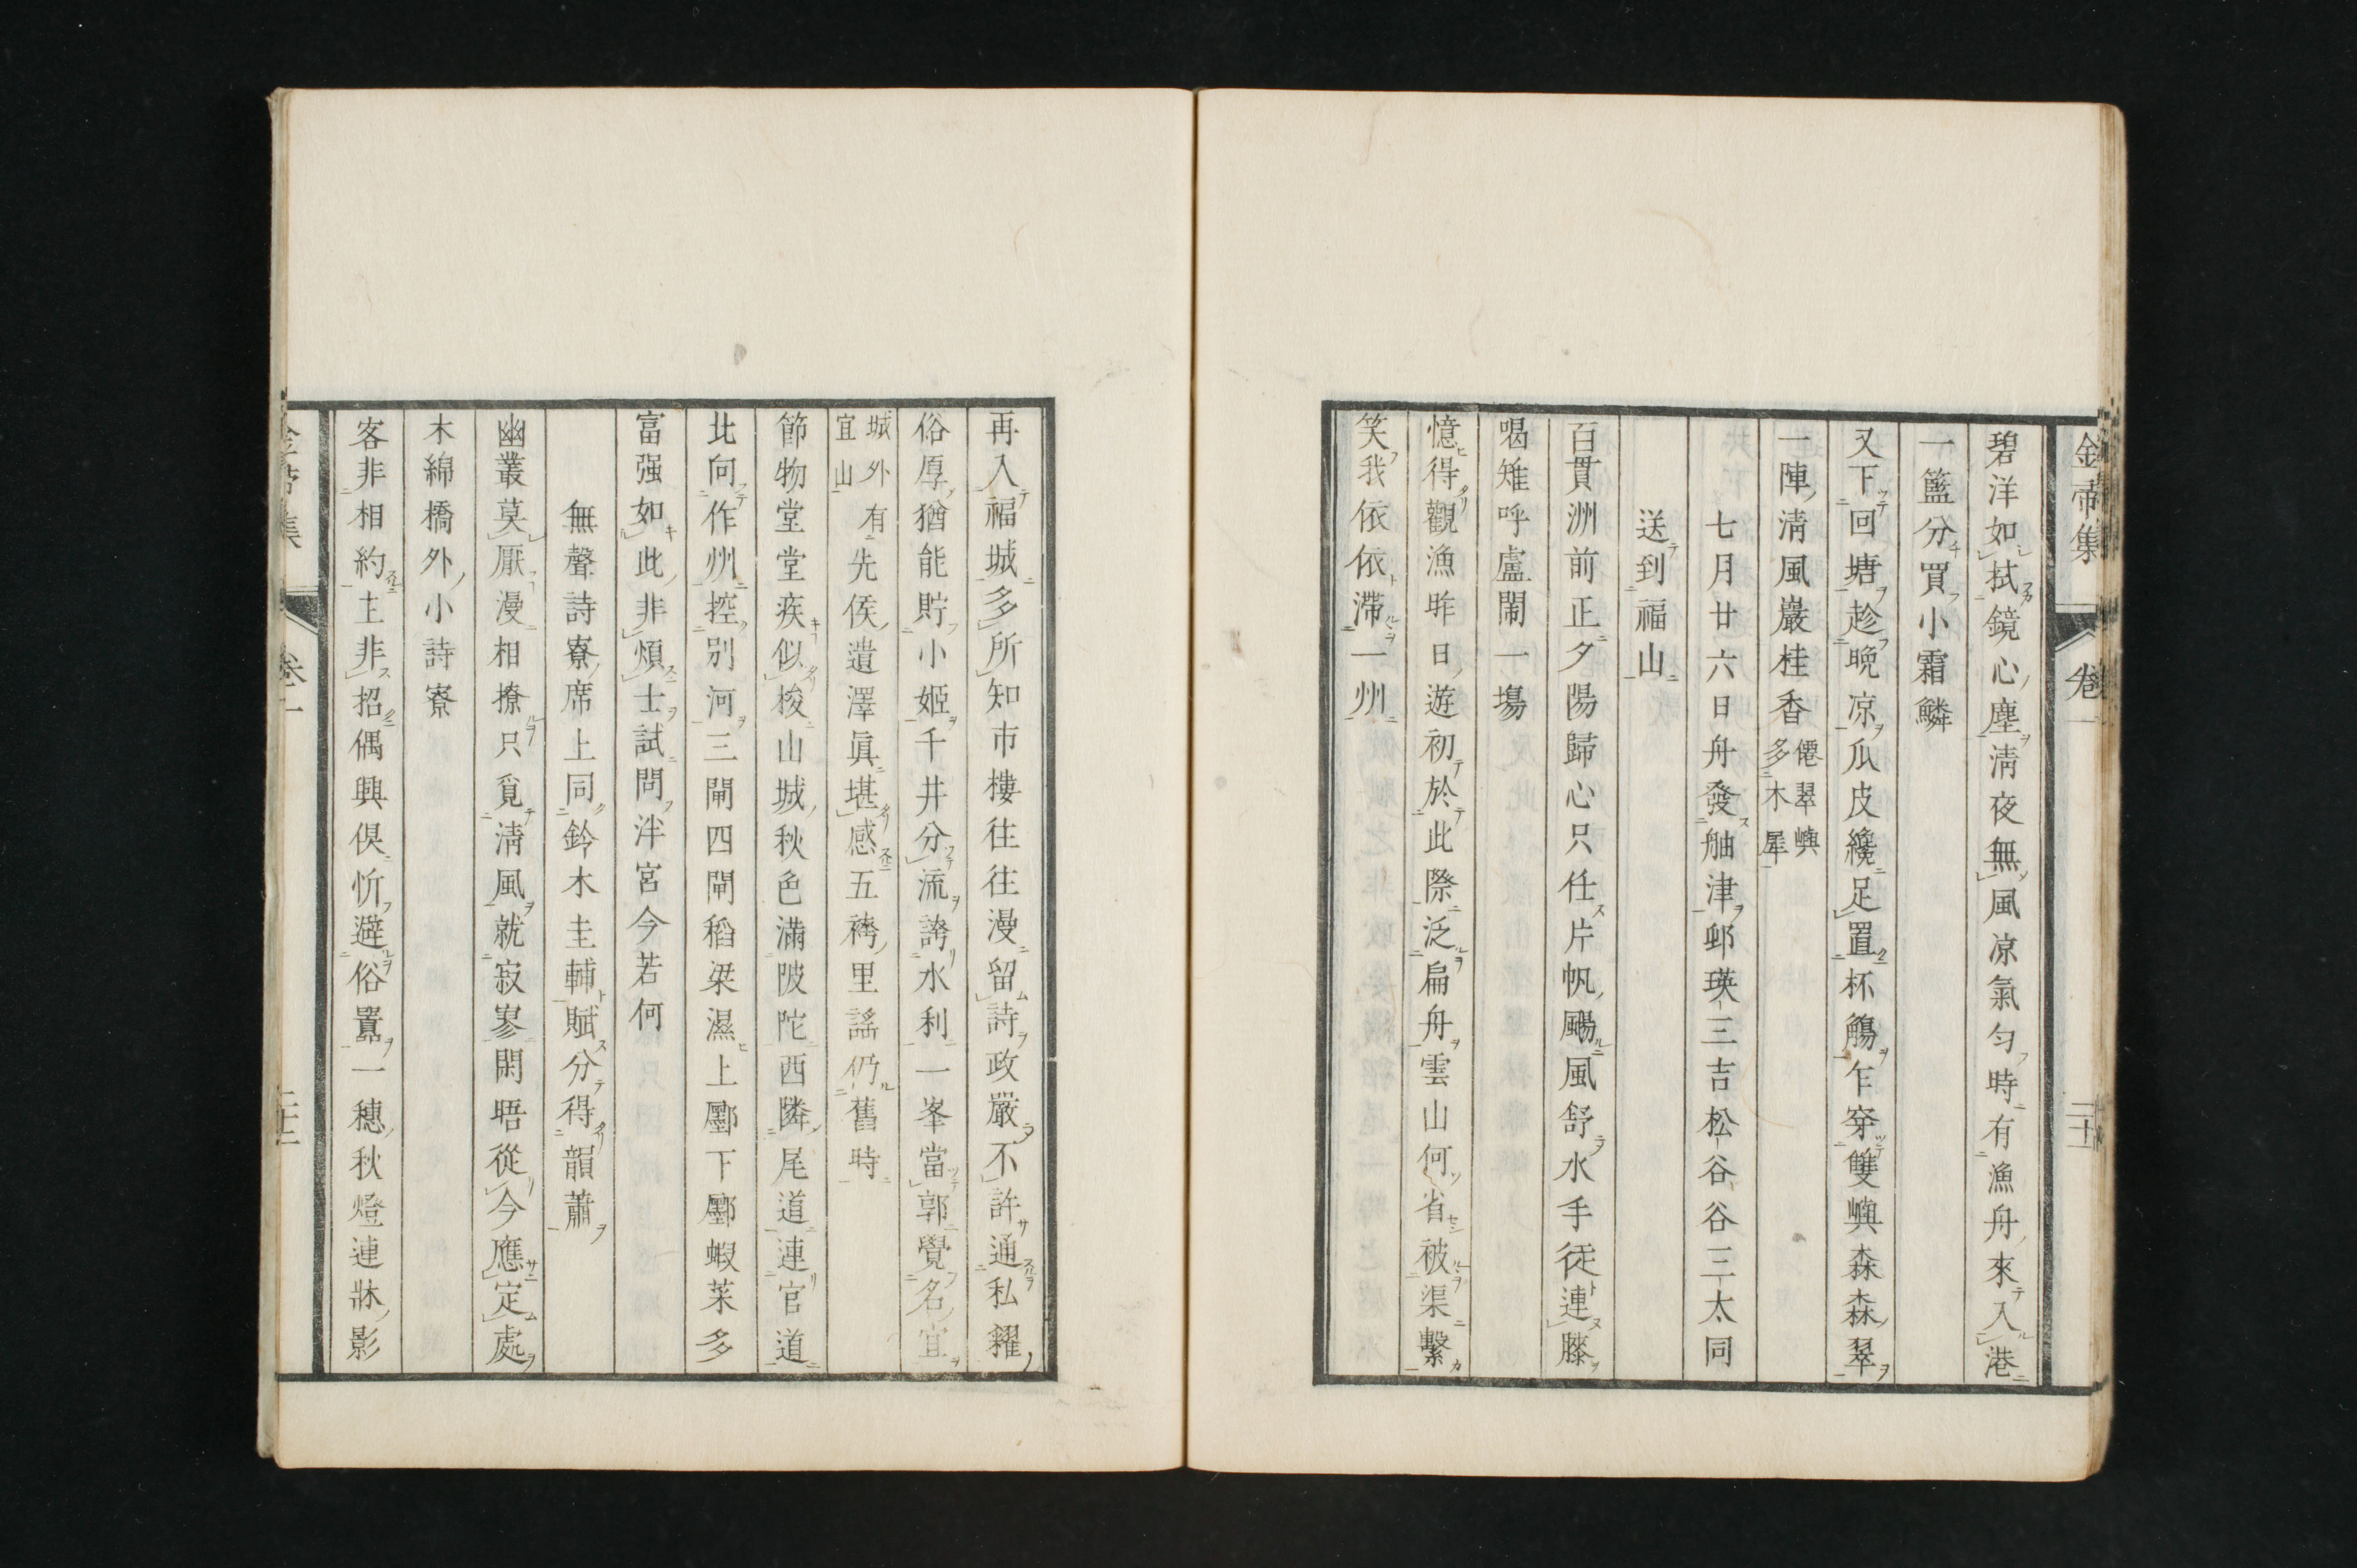 金帚集 卷一 二十
碧洋如拭鏡心塵淸夜無風凉氣勻時有漁舟來入港
一籃分買小霜鱗
又下回塘趁晚凉瓜皮纔足置杯觴乍穿雙嶼森森翠
一陣淸風巖桂香僊翠嶼多木犀
七月廿六日舟發舳津邨瑛三吉松谷谷三太同
送到福山
百貫洲前正夕陽歸心只任片帆颺風舒水手徒連膝
喝雉呼盧鬧一場
憶得觀漁昨日遊初於此際泛扁舟雲山何省被渠繫
笑我依依滯一州
再入福城多所知市樓往往漫留詩政嚴不許通私糶
俗厚猶能貯小姬千井分流誇水利一峯當郭覺名宜
城外有宜山先侯遺澤眞堪感五袴里謠仍舊時
節物堂堂疾似梭山城秋色滿陂陀西隣尾道連官道
北向作州控別河三閘四閘稻梁濕上鄽下鄽蝦菜多
富强如此非煩士試問泮宮今若何
無聲詩寮席上同鈴木圭輔賦分得韻蕭
幽叢莫厭漫相撩只覓淸風就寂寥閑晤從今應定處
木綿橋外小詩寮
客非相約主非招偶興俱忻避俗囂一穗秋燈連牀影